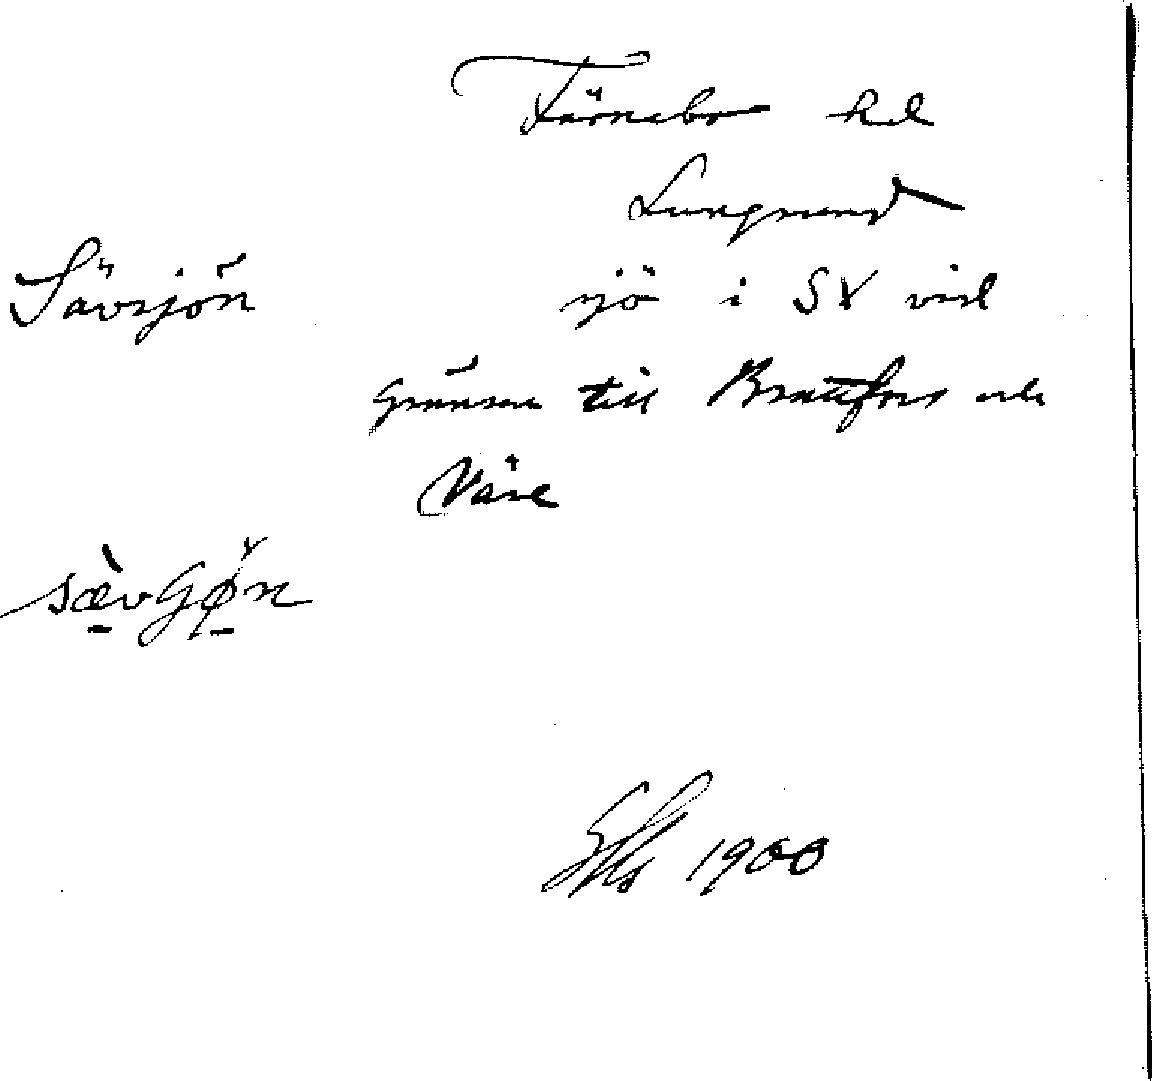 Färnebo hd
Lungsund
Sävsjön sjö i SV vid
gränsen till Brattfors och
Väse
1900